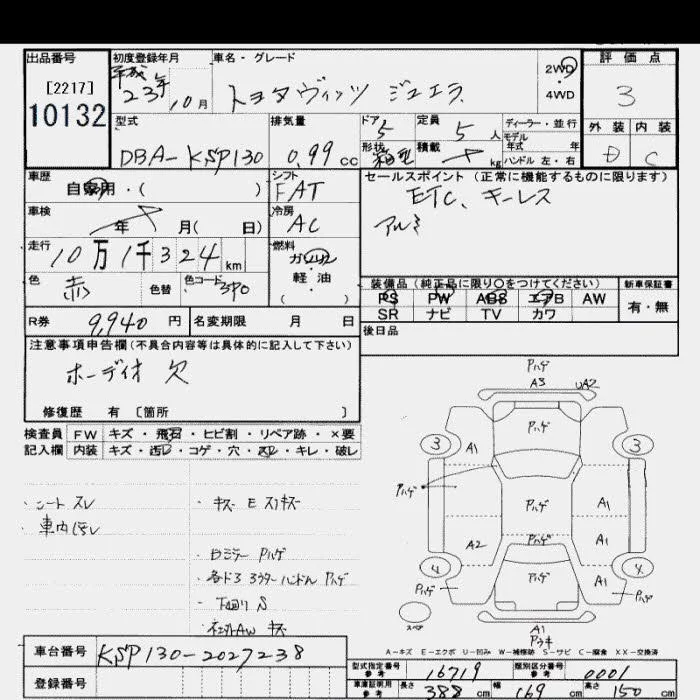 出品番号
[2217]
10132
初度登録年月
平成23年10月
車名・グレード
トヨタ ヴィッツ ジュエラ
2WD
4WD
評価点
3
外装 内装
D C
型式
DBA-KSP130
排気量
0.99 cc
ドア
5
定員
5人
形状
箱型
積載
kg
ディーラー・並行
モデル
年式 年
ハンドル 左・右
車歴
自家用・( )
車検
年 月( 日)
走行
10万1千324 km
色
赤
色替
色コード
3P0
シフト
FAT
冷房
AC
燃料
ガソリン
軽・油
( )
セールスポイント (正常に機能するものに限ります)
ETC、キーレス
アルミ
装備品(純正品に限り○をつけてください)
新車保証書
PS PW ABS エアB AW
SR ナビ TV カワ
有・無
R券 9,940 円
名変期限 月 日
後日品
注意事項申告欄(不具合内容等は具体的に記入して下さい)
オーディオ 欠
修復歴 有 [箇所 ]
検査員
記入欄
FW キズ・飛石・ヒビ割・リペア跡・×要
内装 キズ・汚レ・コゲ・穴・スレ・キレ・破レ
・シート スレ
・車内 汚レ
・キズ E スリキズ
・ロミラー Pハゲ
・各ドア アウターハンドル Pハゲ
・下回り S
・ネエ外AW キズ
Pハゲ
A3 UA2
Pハゲ
3 A1 3
Pハゲ
Pハゲ A1
A2 Pハゲ A1
4 Pハゲ A1 4
Pハゲ Pハゲ
スペア
A1
Pウキ
A-キズ E-エクボ U-凹み W-補修跡 S-サビ C-腐食 XX-交換済
車台番号 KSP130-2027238
登録番号
型式指定番号
参考
16719
類別区分番号
参考
0001
車庫証明用
参考
長さ 388 cm 幅 169 cm 高さ 150 cm